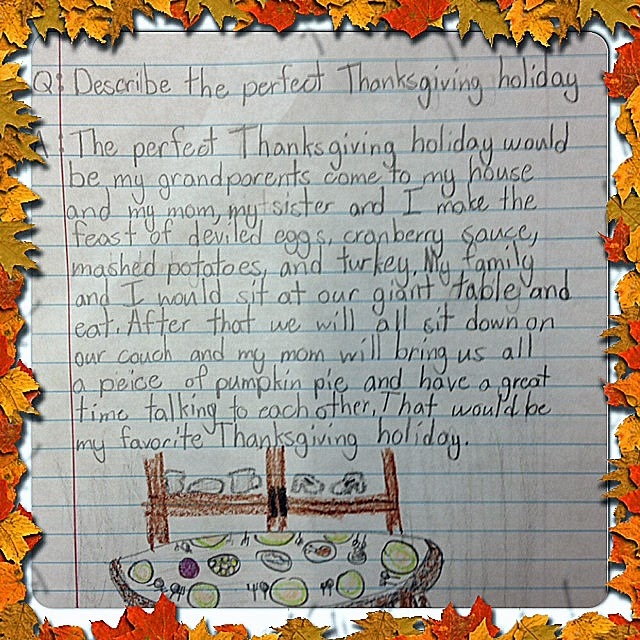 Q: Describe the perfect Thanksgiving holiday
A: The perfect Thanksgiving holiday would
be my grandparents come to my house
and my mom, my sister and I make the
feast of deviled eggs, cranberry sauce,
mashed potatoes, and turkey. My family
and I would sit at our giant table and
eat. After that we will all sit down on
our couch and my mom will bring us all
a peice of pumpkin pie and have a great
time talking to each other. That would be
my favorite Thanksgiving holiday.